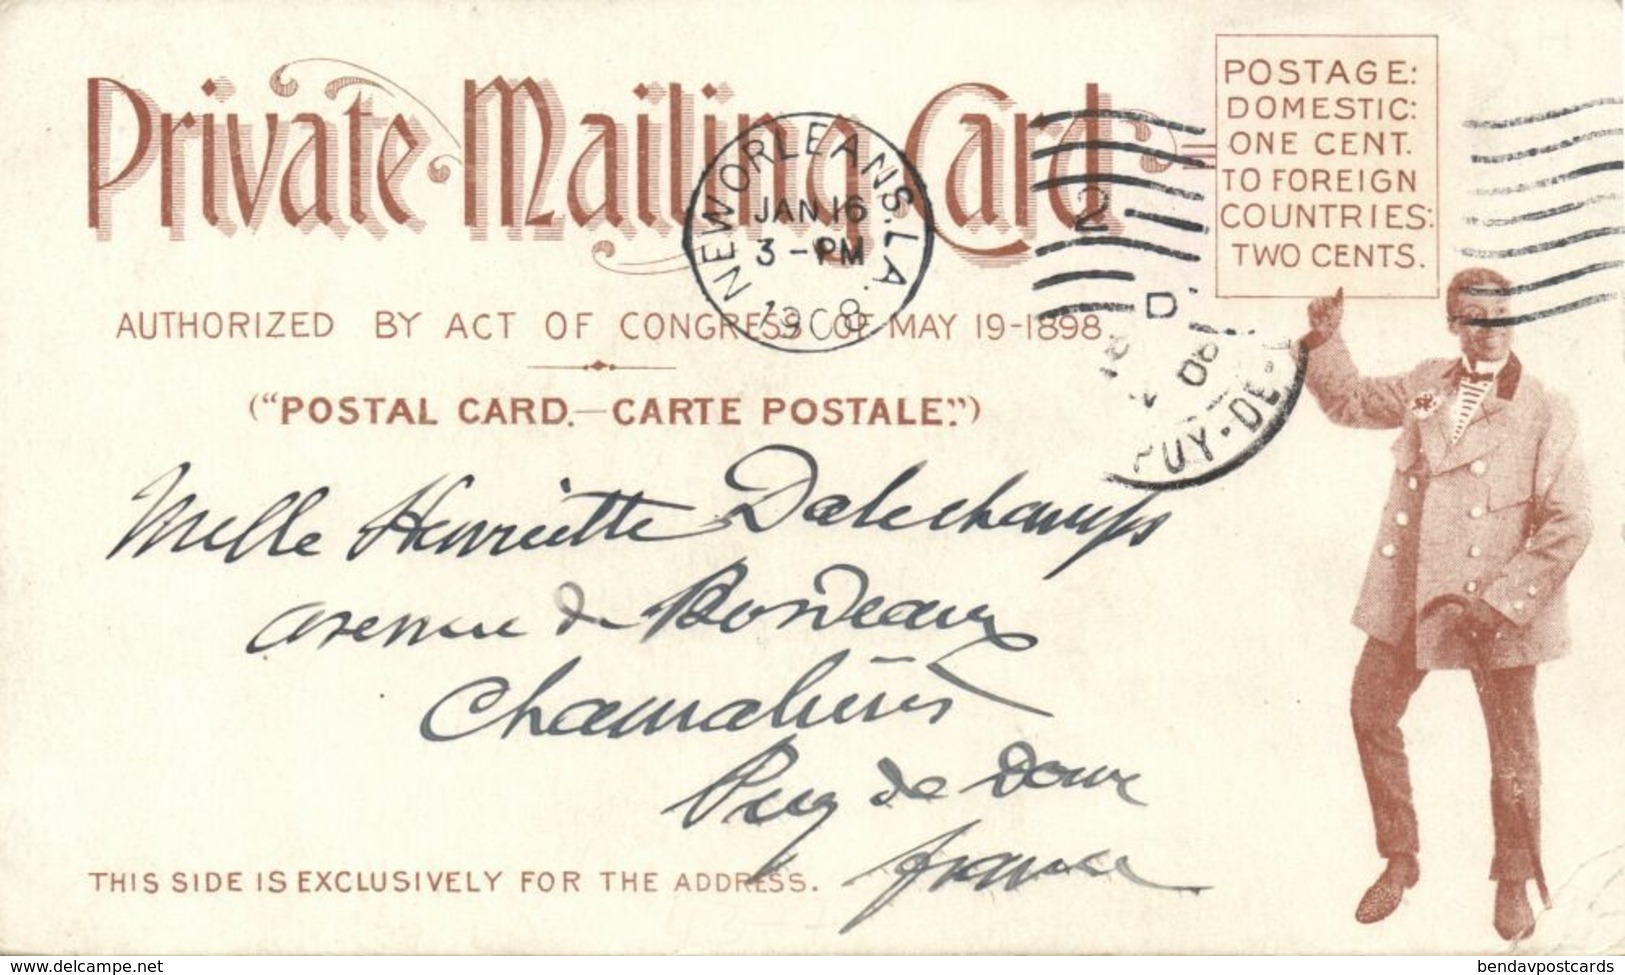 Private Mailing Card
POSTAGE:
DOMESTIC:
ONE CENT.
TO FOREIGN
COUNTRIES:
TWO CENTS.
NEW ORLEANS. LA.
JAN 16
3 - PM
1908
2
D
08
PUY-DE-
AUTHORIZED BY ACT OF CONGRESS OF MAY 19-1898
("POSTAL CARD.—CARTE POSTALE".)
Melle Henriette Dalechamps
avenue de Bordeaux
Chamalières
Puy de Dome
france
THIS SIDE IS EXCLUSIVELY FOR THE ADDRESS.
www.delcampe.net
bendavpostcards